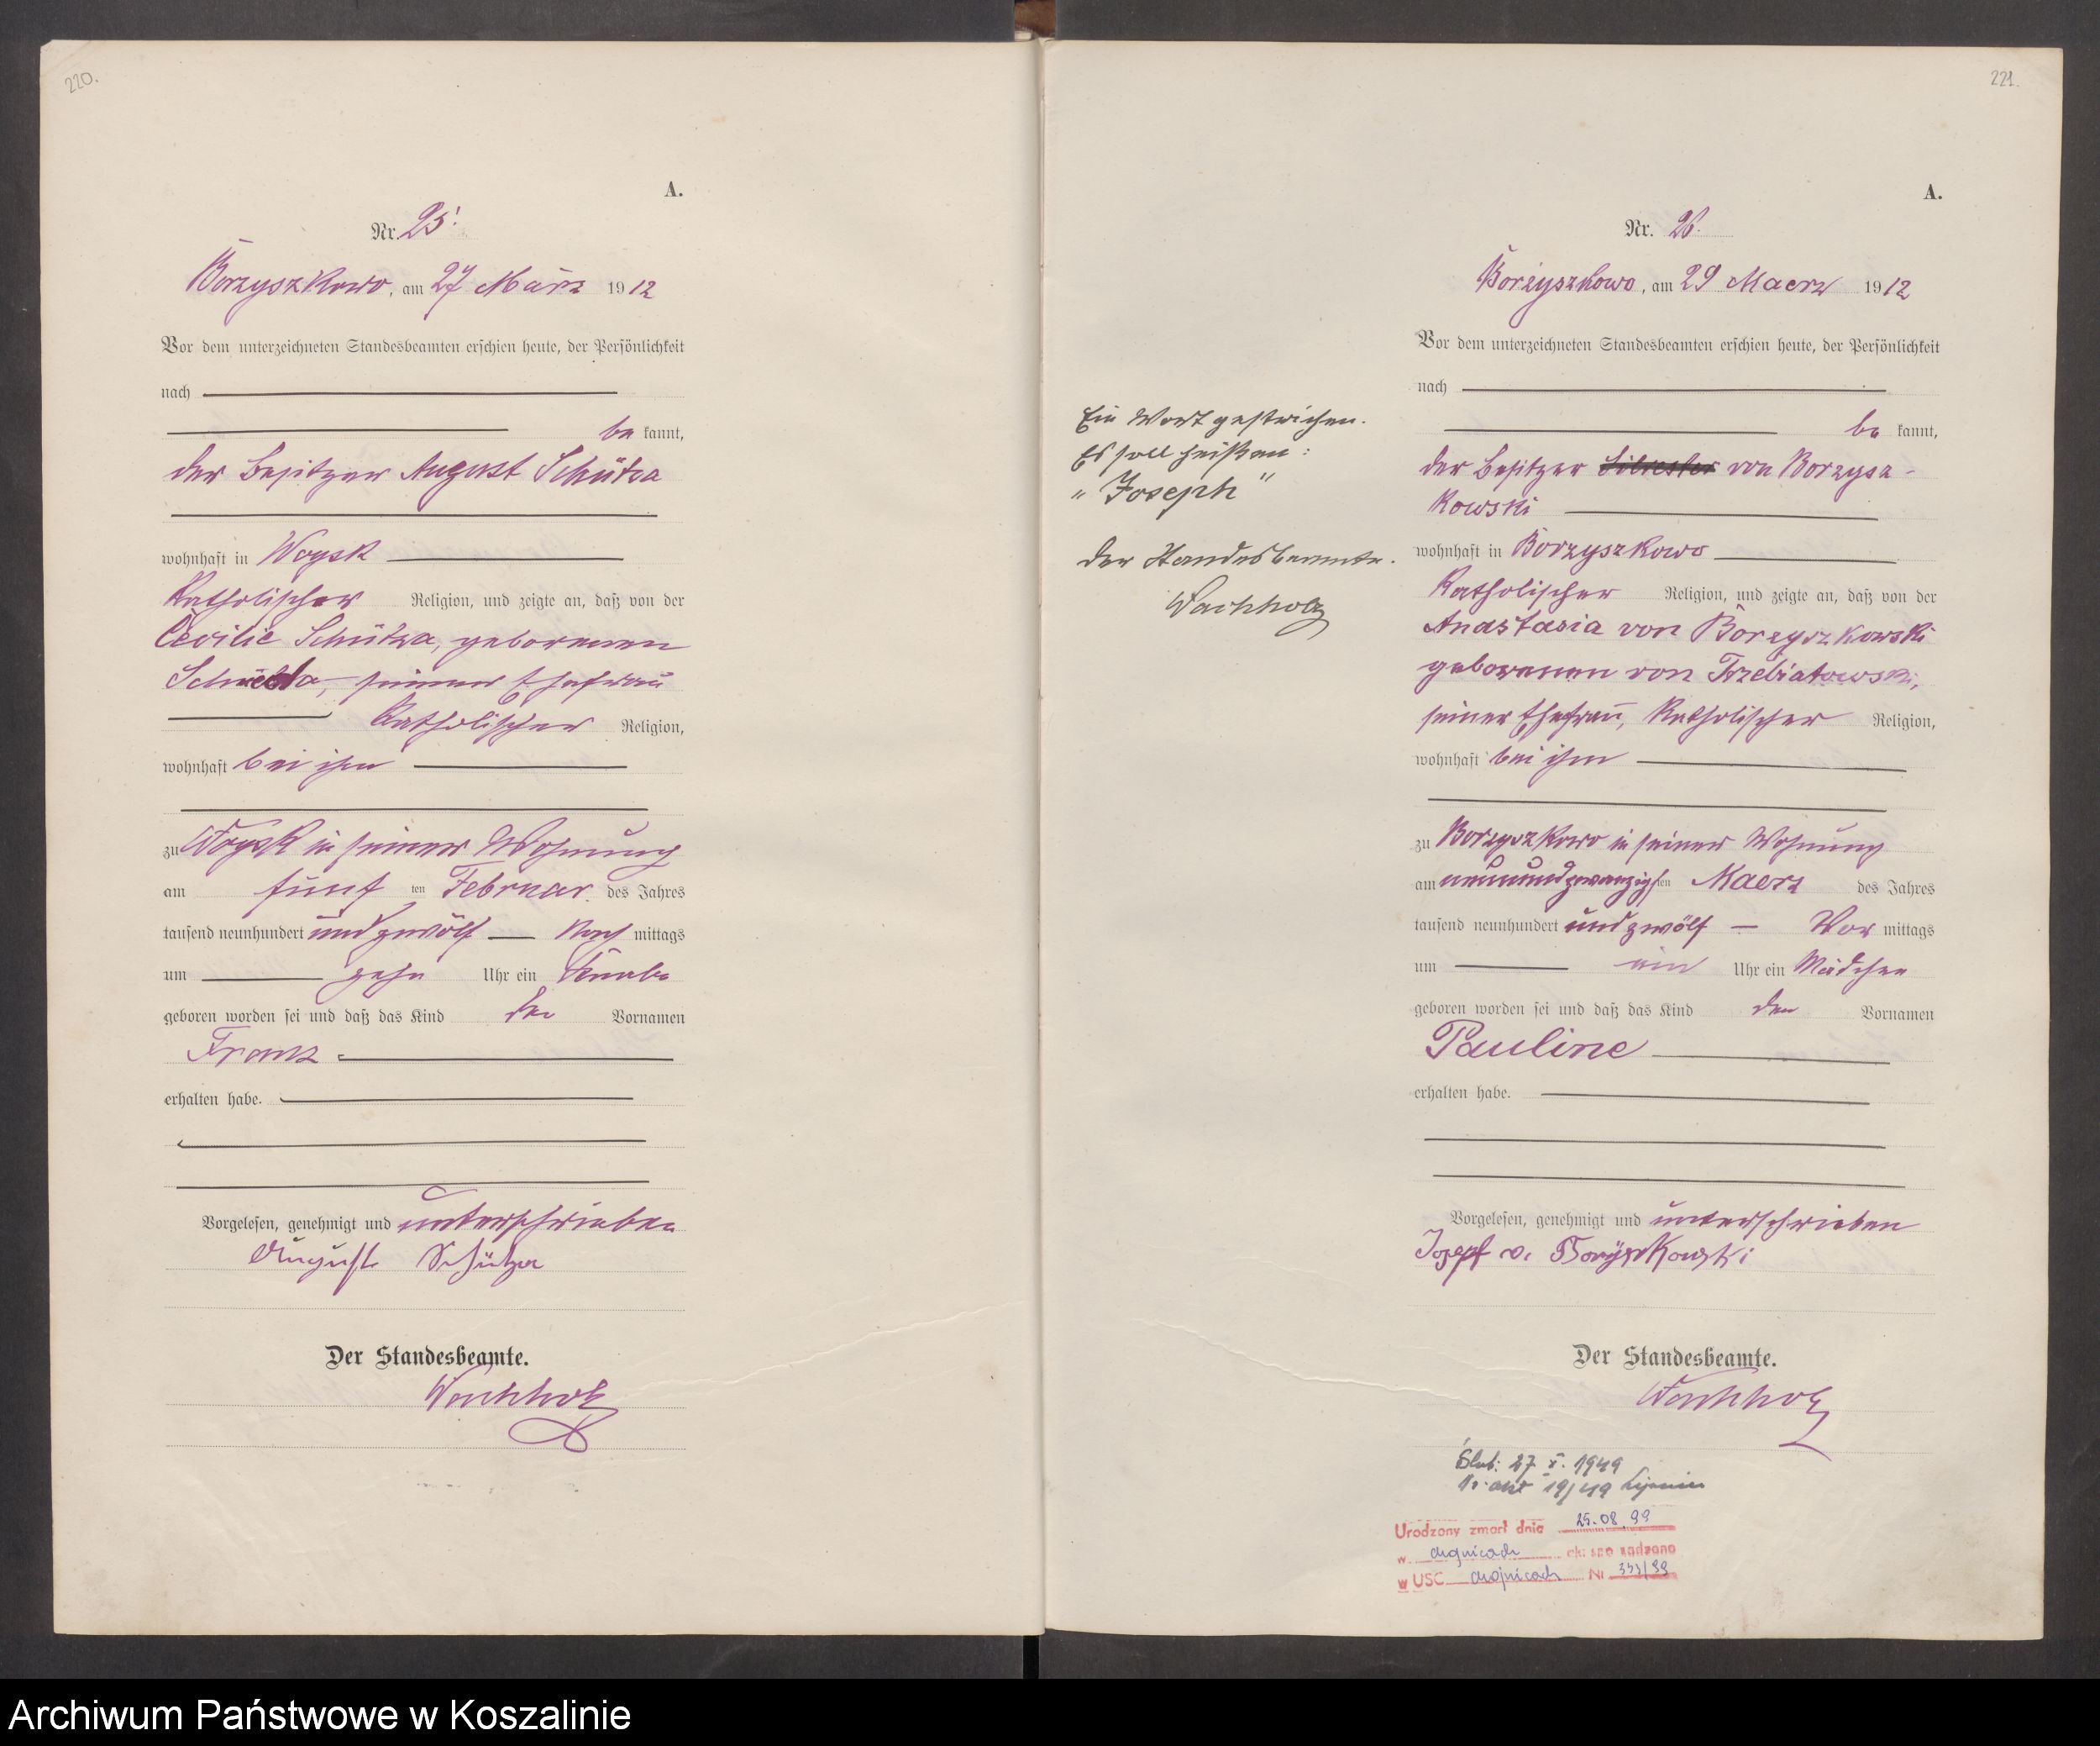 220.
A.
Nr. 25.
Borzyszkowo, am 27 März 1912
Vor dem unterzeichneten Standesbeamten erschien heute, der Persönlichkeit
nach
be kannt,
der Besitzer August Schütza
wohnhaft in Woysk
Katholischer Religion, und zeigte an, daß von der
Cecilie Schütza, geborenen
seiner Ehefrau
Katholischer Religion,
wohnhaft bei ihm
zu Woysk in seiner Wohnung
am fünf ten Februar des Jahres
tausend neunhundert und zwölf Nach mittags
um zehn Uhr ein Knabe
geboren worden sei und daß das Kind den Vornamen
Franz
erhalten habe.
Vorgelesen, genehmigt und unterschrieben
August Schütza
Der Standesbeamte.
Wachholz
221.
A.
Nr. 26.
Borzyszkowo, am 29 Maerz 1912
Vor dem unterzeichneten Standesbeamten erschien heute, der Persönlichkeit
nach
be kannt,
der Besitzer Silvester von Borzysz-
kowski
wohnhaft in Borzyszkowo
Katholischer Religion, und zeigte an, daß von der
Anastasia von Borzyszkowski
geborenen von Trzebiatowski,
seiner Ehefrau, Katholischer Religion,
wohnhaft bei ihm
zu Borzyszkowo in seiner Wohnung
am neunundzwanzigsten Maerz des Jahres
tausend neunhundert und zwölf Vor mittags
um ein Uhr ein Mädchen
geboren worden sei und daß das Kind den Vornamen
Pauline
erhalten habe.
Vorgelesen, genehmigt und unterschrieben
Josepf v. Borzyszkowski
Der Standesbeamte.
Wachholz
Ein Wort gestrichen.
Es soll heißen:
"Joseph"
Der Standesbeamte.
Wachholz
Ślub: 27 X. 1949
Nr. akt 19/49 Lipnica
Urodzony zmarł dnia 25.08.99
w Chojnicach akt sporządzono
w USC Chojnicach Nr 333/99
Archiwum Państwowe w Koszalinie